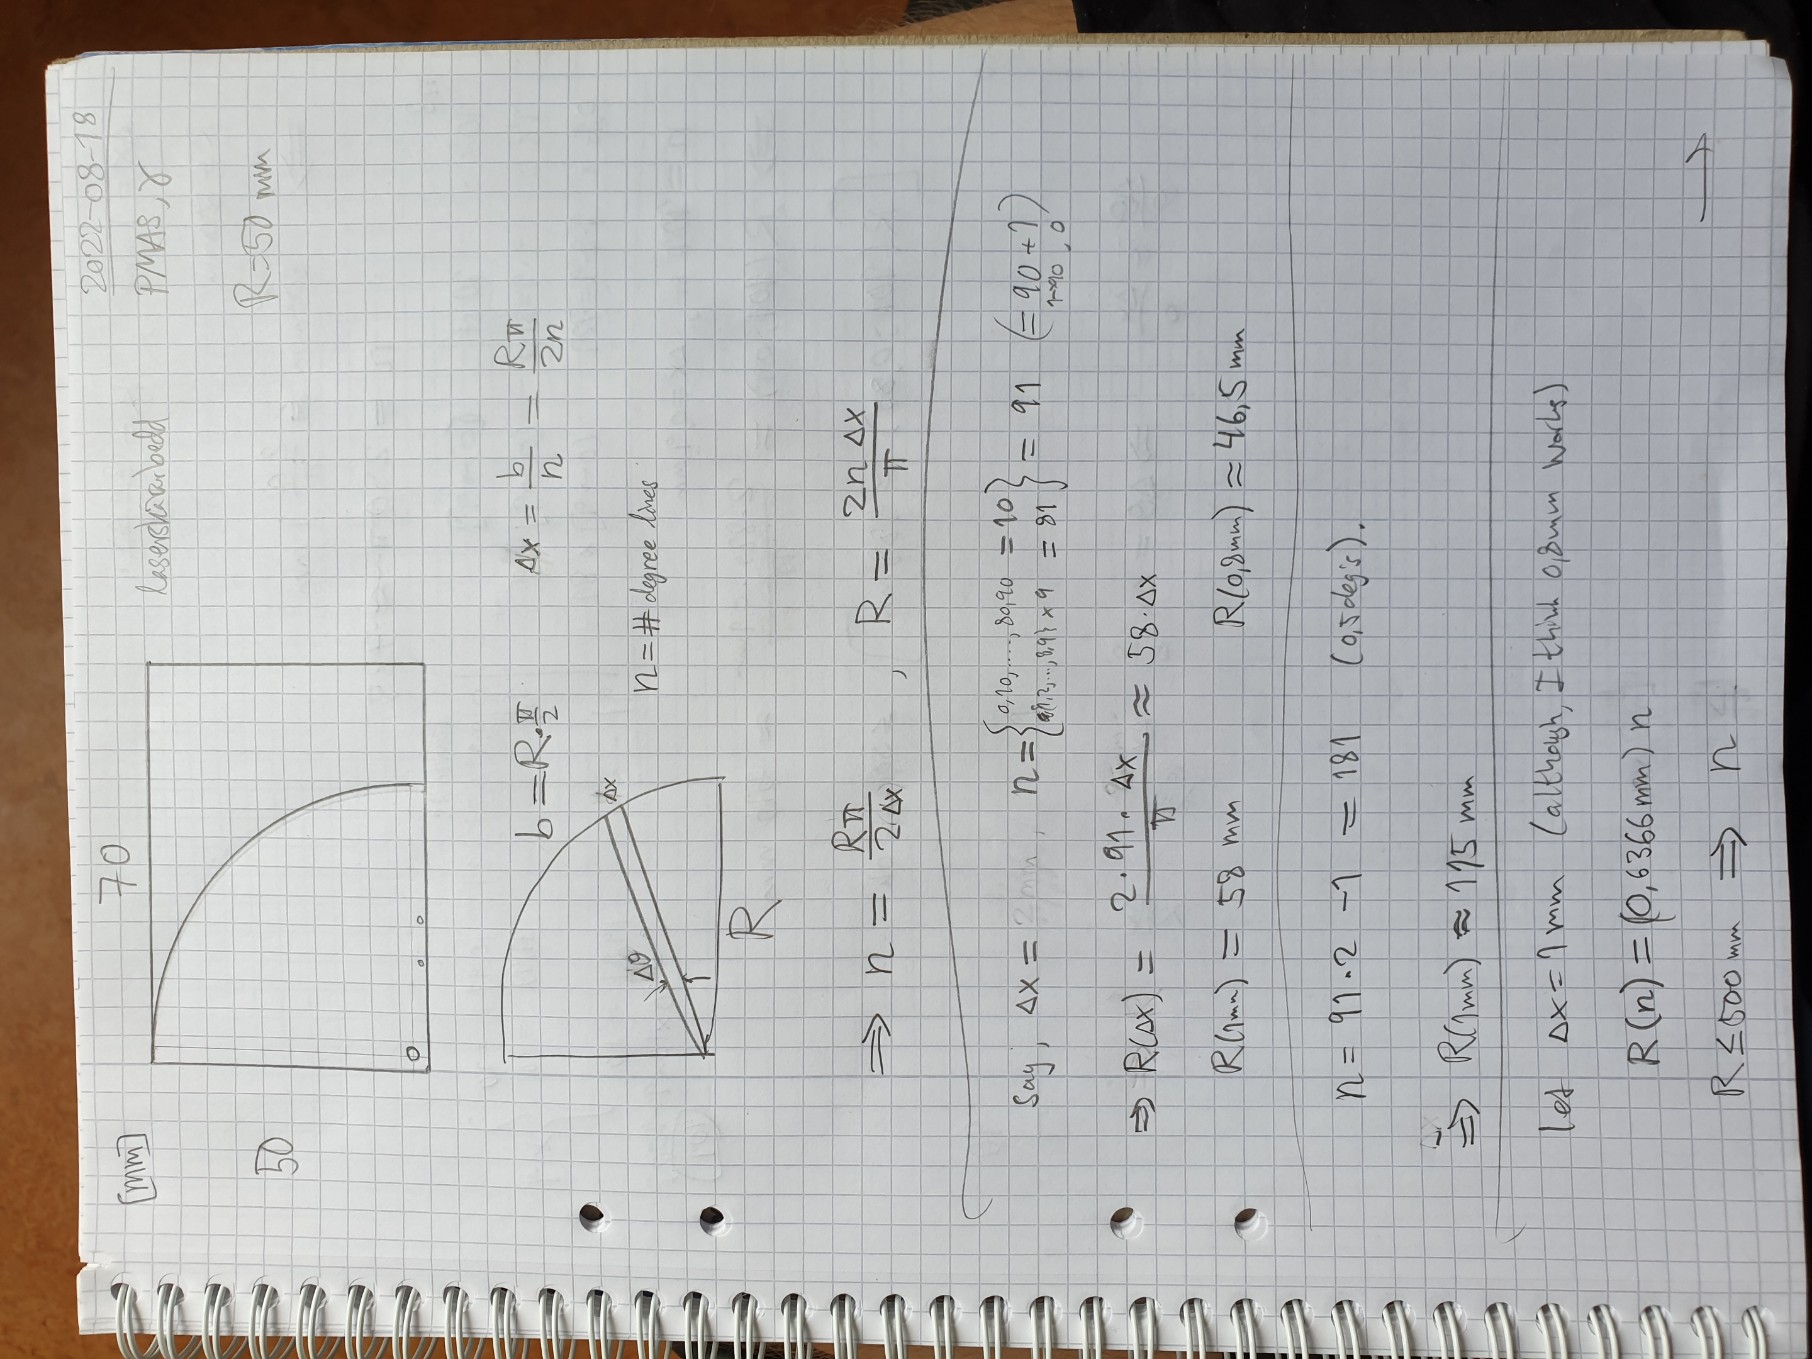 2022-08-18
[mm] 70
laserskärarbedd PMAS, γ
50 R=50 mm
b = R·π/2 Δx = b/n = Rπ/2n
Δx
Δθ
n = # degree lines
R
⇒ n = Rπ/2Δx , R = 2nΔx/π
Say, Δx = 2mm, n = { 0,10,....,80,90 = 10
{1,2,...,8,9} × 9 = 81 } = 91 (= 90 + 1)
1→90 , 0
⇒ R(Δx) = 2·91·Δx/π ≈ 58·Δx
R(1mm) = 58 mm R(0,8mm) ≈ 46,5 mm
n = 91·2 -1 = 181 (0,5deg's).
⇒ R(1mm) ≈ 115 mm
Let Δx = 1mm (although, I think 0,8mm works)
R(n) = (0,6366mm) n
R ≤ 500 mm ⇒ n
→